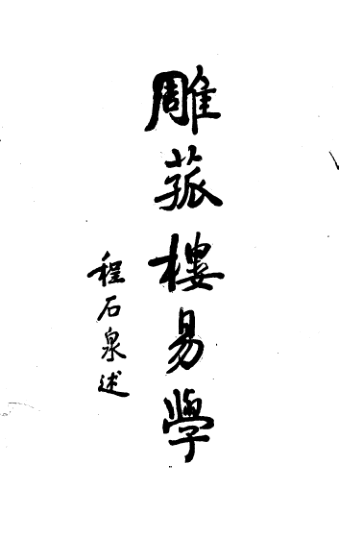 雕菰樓易學
程石泉述